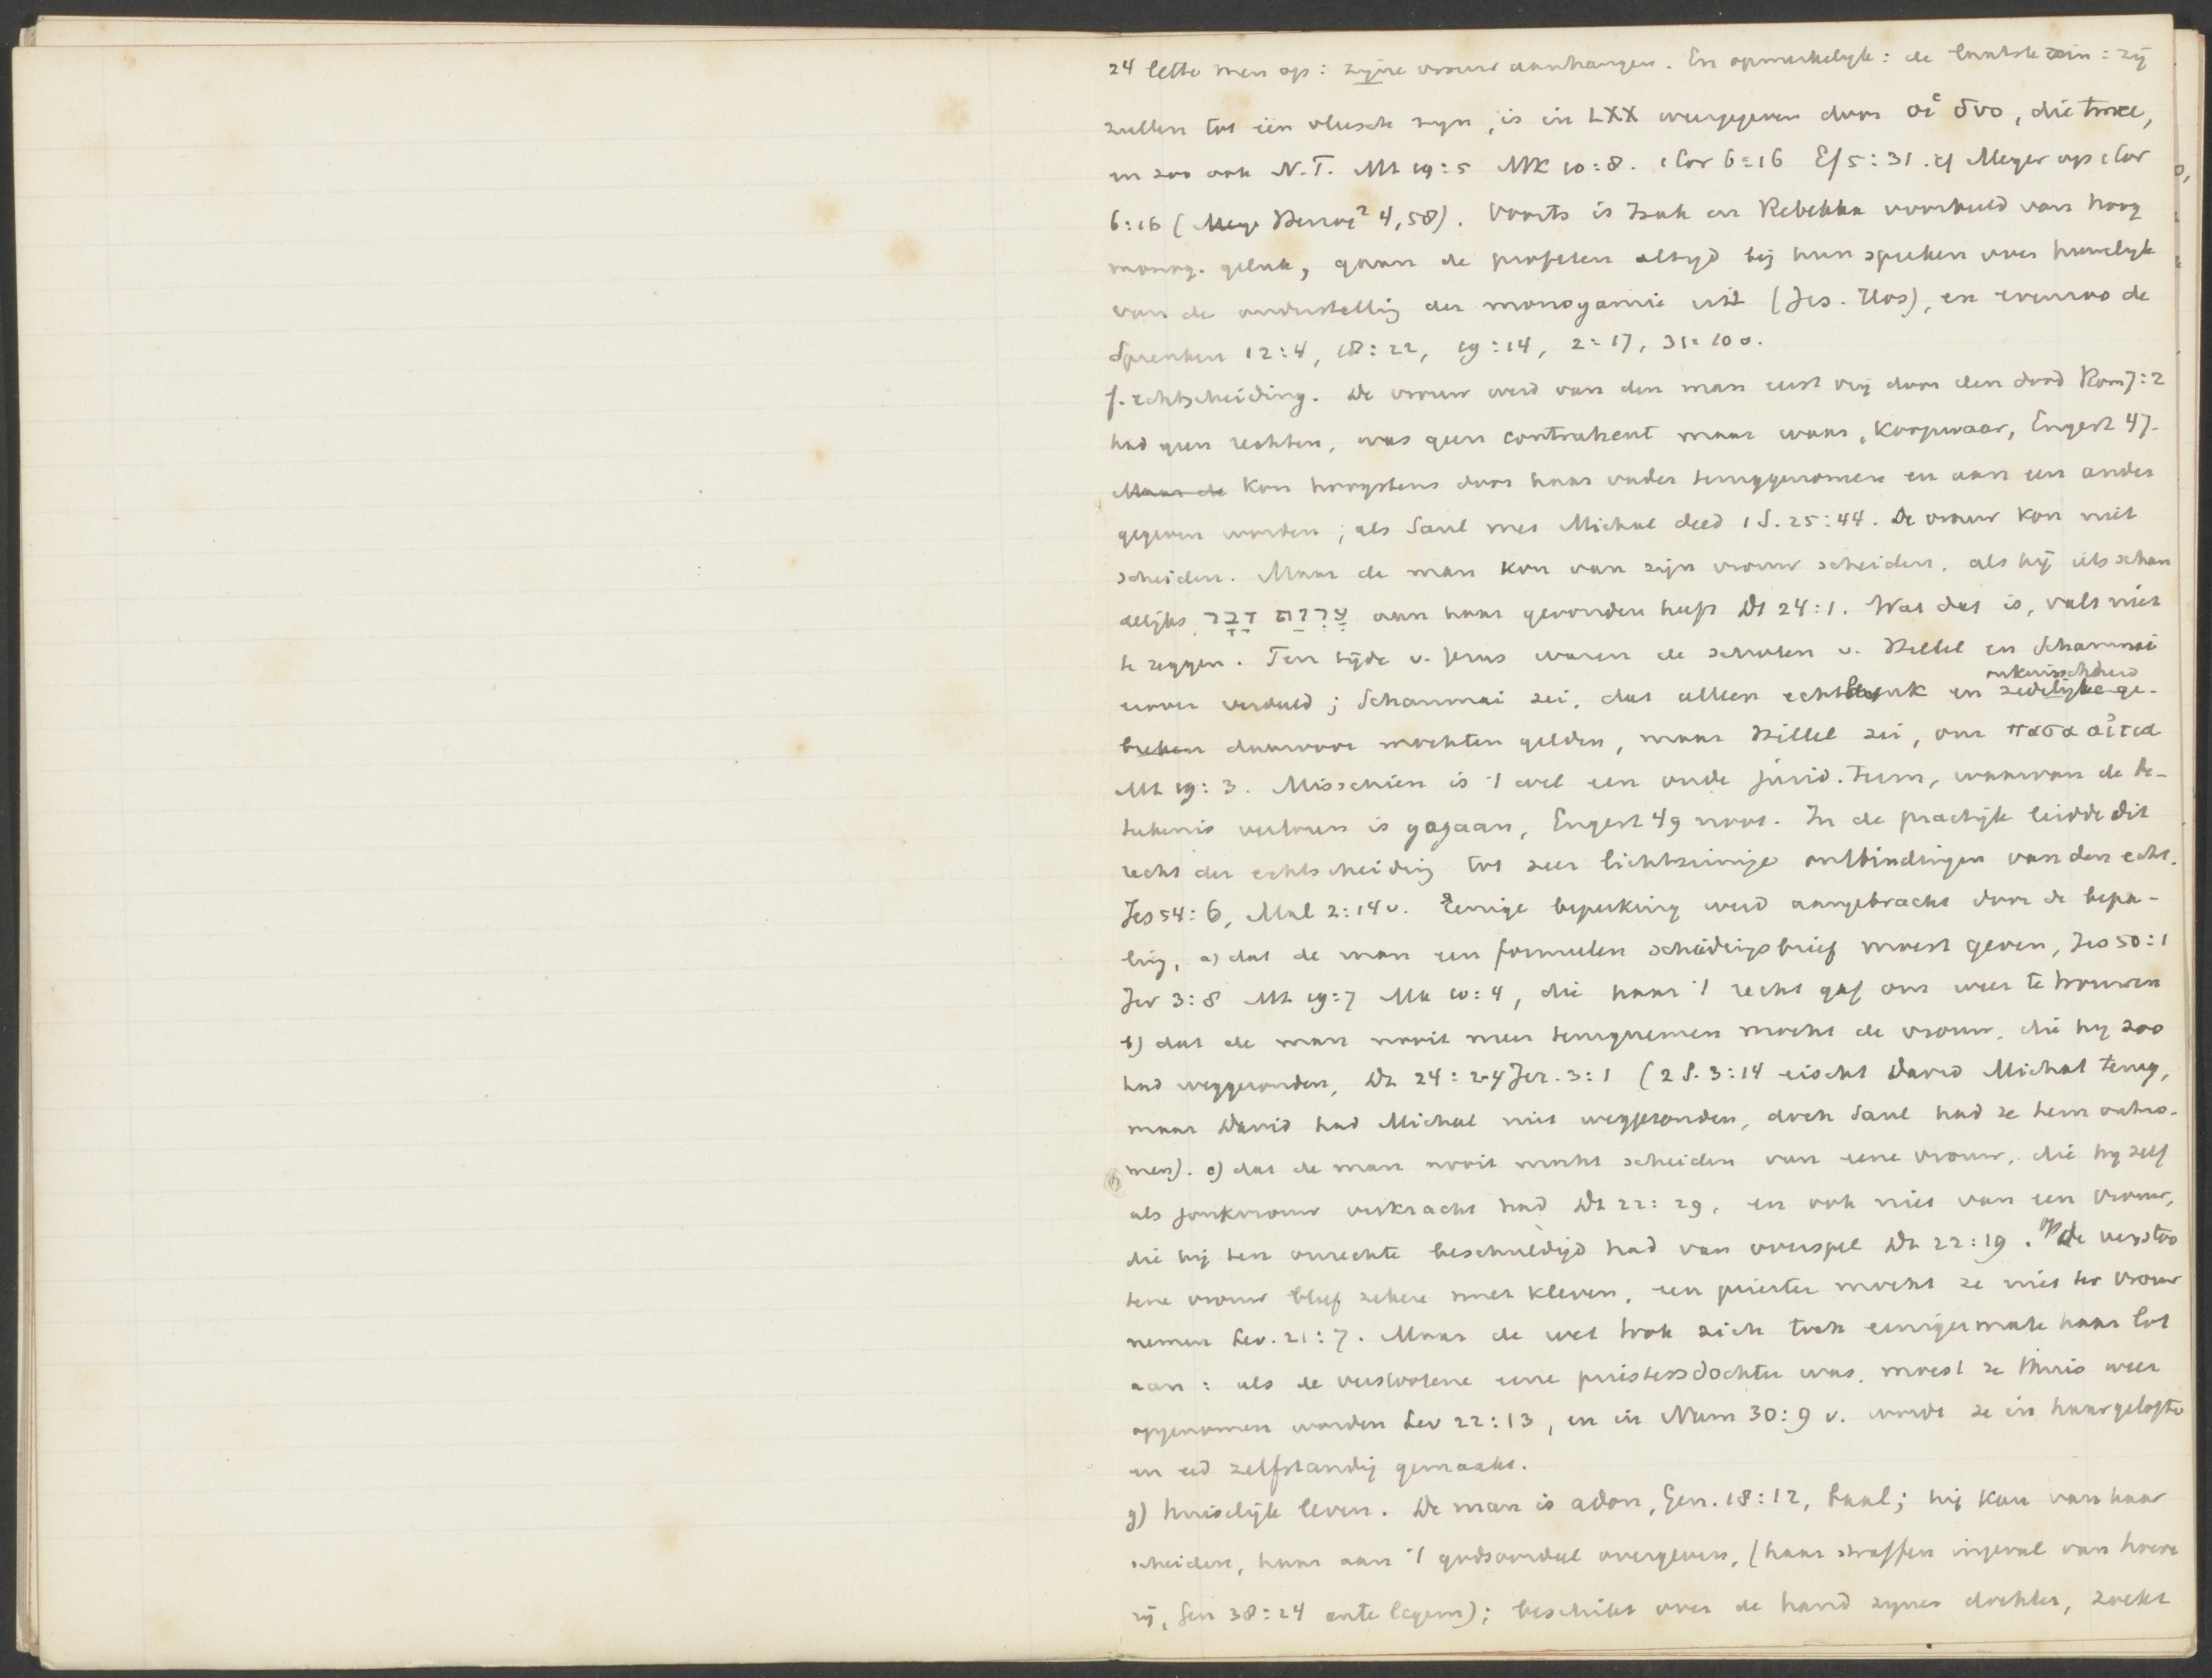 24 lette men op: zijne vrouw aanhangen. En opmerkelijk: de laatste zin: zij
zullen tot één vleesch zijn, is in LXX weergegeven door οἱ δυο, die twee,
en zoo ook N.T. Mt 19:5 Mk 10:8. 1 Cor 6:16 Ef 5:31. cf Meyer op 1 Cor
6:16 (Herzog² 4,58). Voorts is Izak en Rebekka voorbeeld van hoog
monog. geluk, gaan de profeten altijd bij hun spreken over huwelijk
van de onderstelling der monogamie uit (Jes. Hos), en evenzoo de
Spreuken 12:4, 18:22, 19:14, 2:17, 31:10 v.
f. echtscheiding. De vrouw werd van den man eerst vrij door den dood Rom 7:2
had geen rechten, was geen contrahent maar waar, koopwaar, Engert 47.
Maar de kon hoogstens door haar vader teruggenomen en aan een ander
gegeven worden, als Saul met Michal deed 1 S. 25:44. De vrouw kon niet
scheiden. Maar de man kon van zijn vrouw scheiden, als hij iets schan
delijks, עֶרְוַת דָּבָר aan haar gevonden heeft Dt 24:1. Wat dat is, valt niet
te zeggen. Ten tijde v. Jezus waren de scholen v. Hillel en Schammai
onkuischheid
erover verdeeld; Schammai zei, dat alleen echtbreuk en zedelijke ge-
breken daarvoor mochten gelden, maar Hillel zei, om πασα αἰτια
Mt 19:3. Misschien is 't wel een oude jurid. term, waarvan de be-
tekenis verloren is gegaan, Engert 49 noot. In de practijk leidde dit
recht der echtscheiding tot zeer lichtzinnige ontbindingen van den echt.
Jes 54:6, Mal 2:14 v. Eenige beperking werd aangebracht door de bepa-
ling, a) dat de man een formeelen scheidingsbrief moest geven, Jes 50:1
Jer 3:8 Mt 19:7 Mk 10:4, die haar 't recht gaf om weer te trouwen
b) dat de man nooit meer terugnemen mocht de vrouw, die hij zoo
had weggezonden, Dt 24:2-4 Jer. 3:1 (2 S. 3:14 eischt David Michal terug,
maar David had Michal niet weggezonden, doch Saul had ze hem ontno-
men). c) dat de man nooit mocht scheiden van eene vrouw, die hij zelf
als jonkvrouw verkracht had Dt 22:29, en ook niet van een vrouw,
die hij ten onrechte beschuldigd had van overspel Dt 22:19. Op de verstoo
tene vrouw bleef zekere smet kleven, een priester mocht ze niet ter vrouw
nemen Lev. 21:7. Maar de wet trok zich toch eenigermate haar lot
aan: als de verstootene eene priestersdochter was, moest ze thuis weer
opgenomen worden Lev 22:13, en in Num 30:9 v. wordt ze in haar gelofte
en eed zelfstandig gemaakt.
g) huiselijk leven. De man is adon, Gen. 18:12, baal; hij kan van haar
scheiden, haar aan 't godsoordeel overgeven, (haar straffen ingeval van hoere
rij, Gen 38:24 ante legem); beschikt over de hand zijner dochter, zoekt